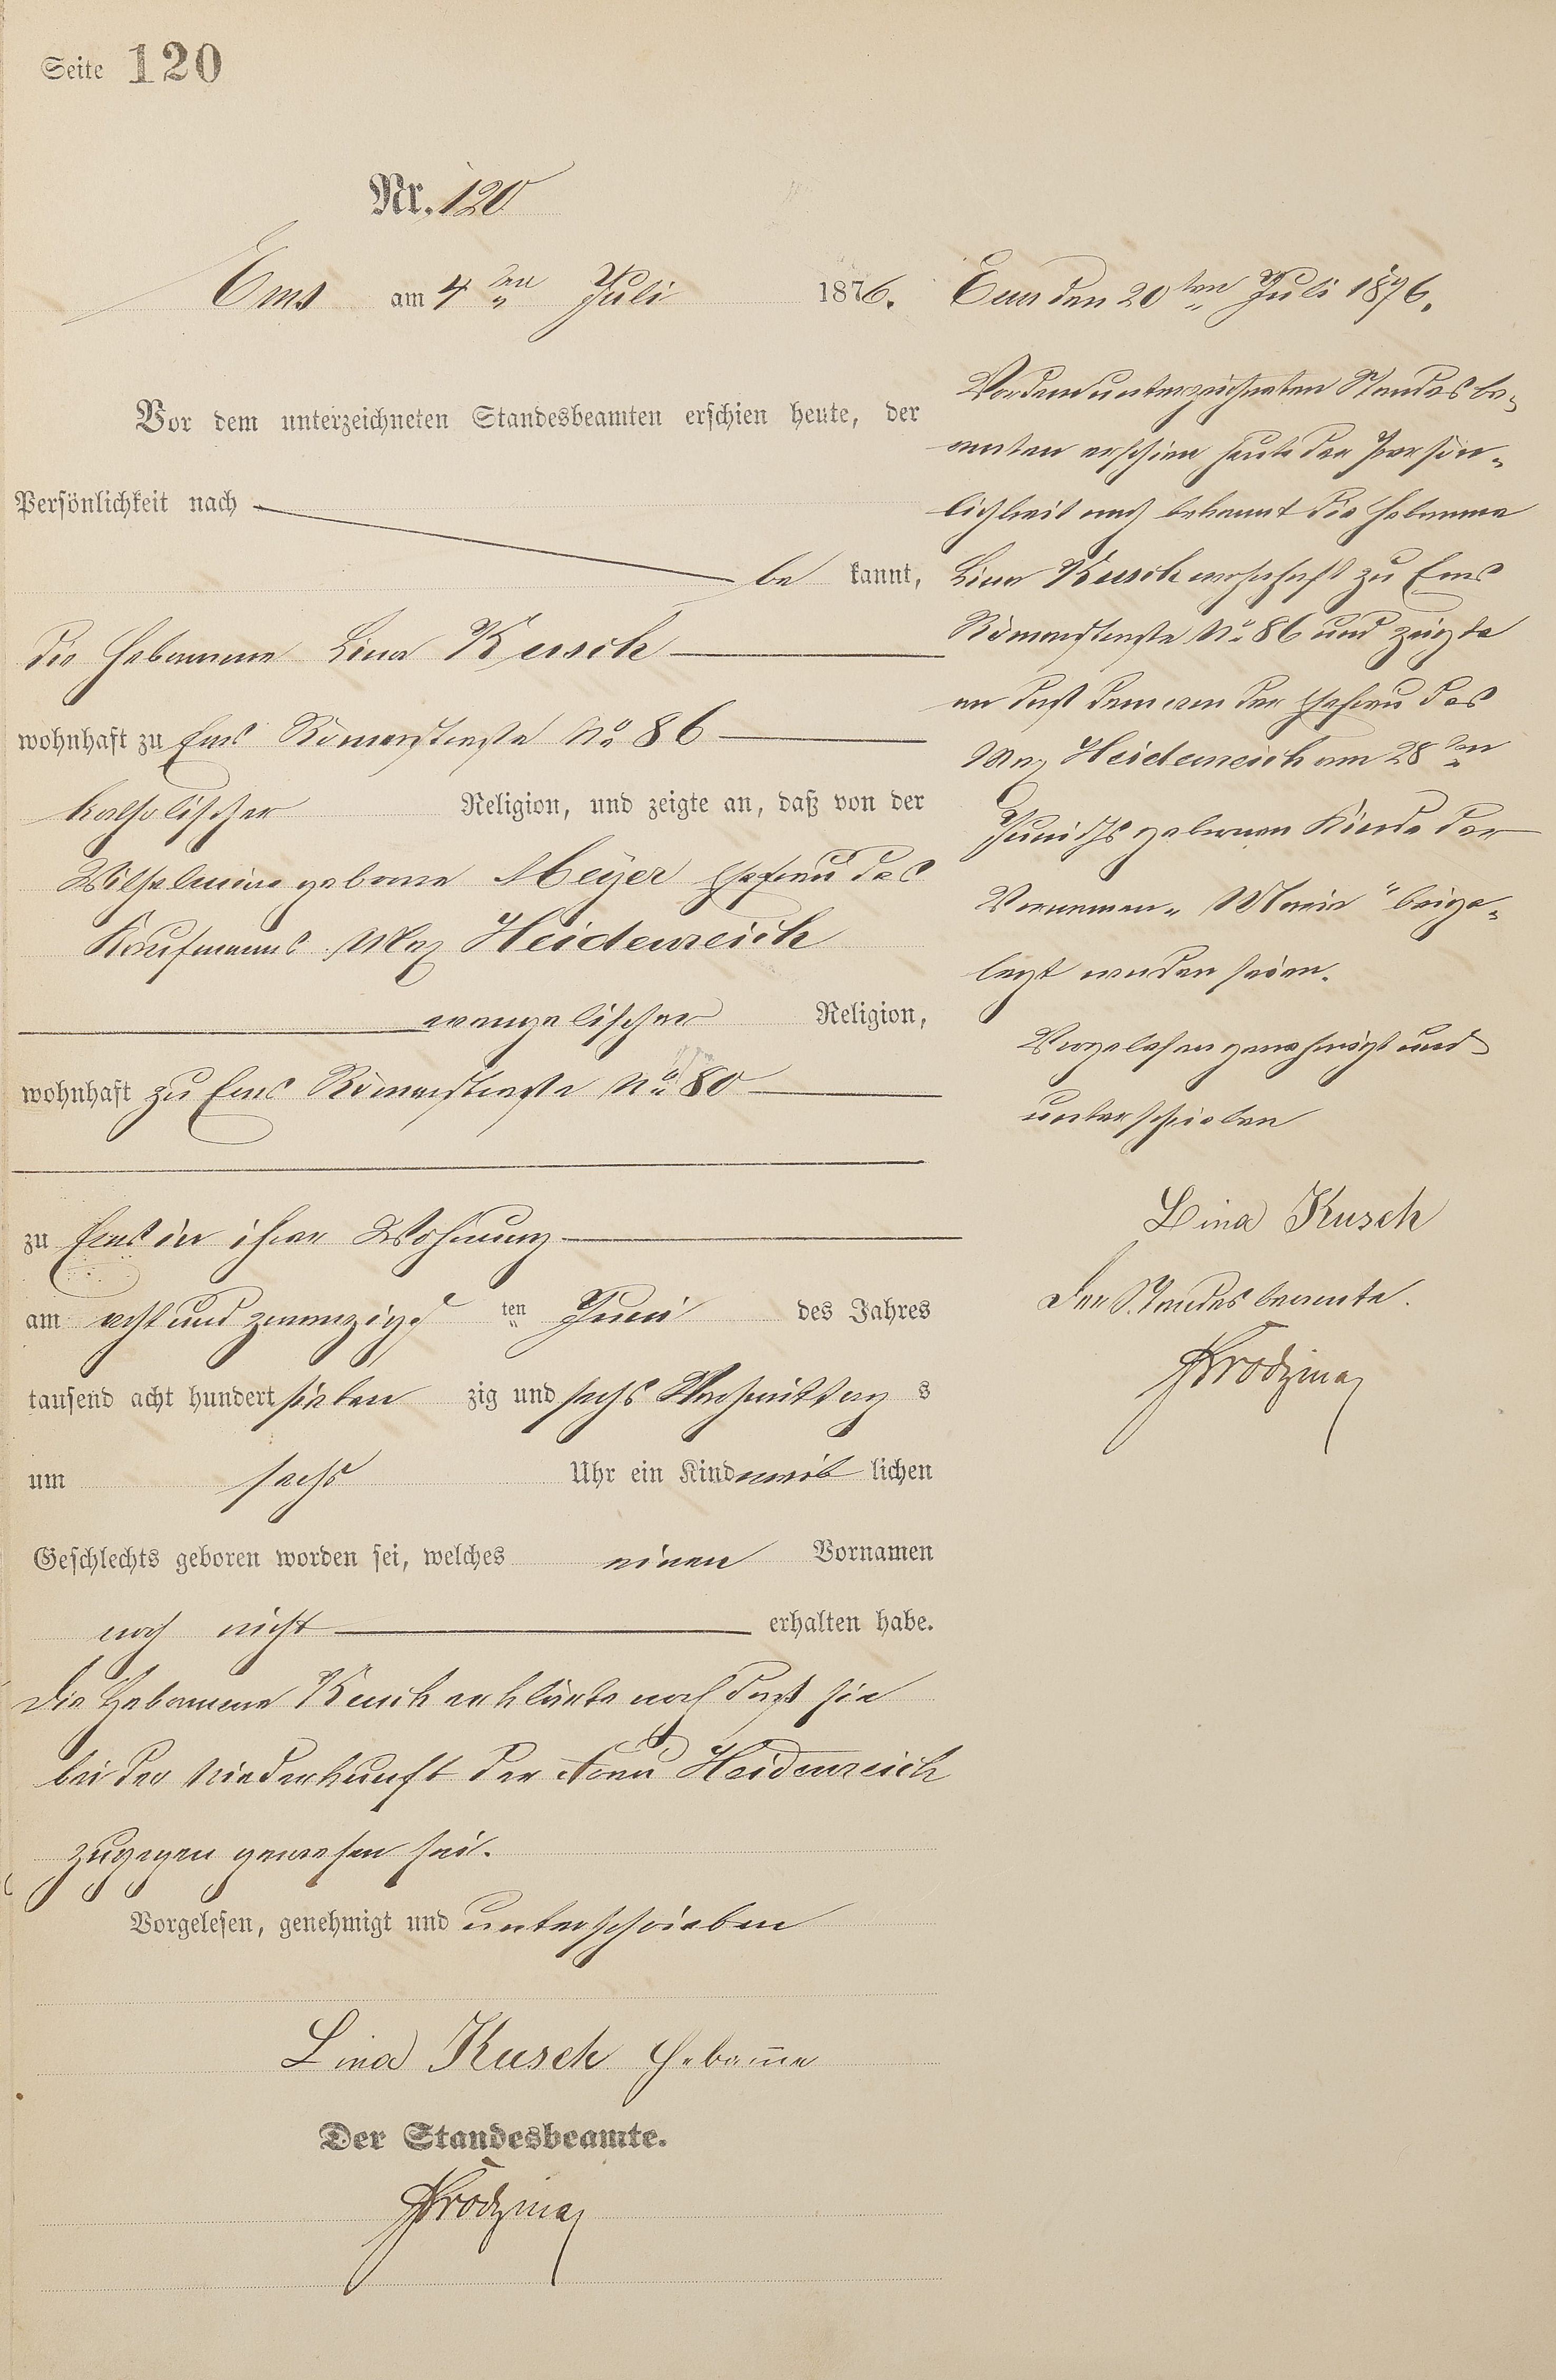 Seite 120
Nr. 120
Ems am 4ten Juli 1876.
Vor dem unterzeichneten Standesbeamten erschien heute, der
Persönlichkeit nach
be kannt,
die Hebamme Lina Kusch
wohnhaft zu Ems Römerstraße No 86
katholischer Religion, und zeigte an, daß von der
Wilhelmine geborne Meyer Ehefrau des
Kaufmanns Max Heidenreich
evangelischer Religion,
wohnhaft zu Ems Römerstraße No 80
zu Ems in ihrer Wohnung
am acht und zwanzigs ten Juni des Jahres
tausend acht hundert sieben zig und sechs Nachmittag s
um sechs Uhr ein Kind weib lichen
Geschlechts geboren worden sei, welches einen Vornamen
noch nicht erhalten habe.
Die Hebamme Kusch erklärte noch daß sie
bei der Niederkunft der Frau Heidenreich
zugegen gewesen sei.
Vorgelesen, genehmigt und unterschrieben
Lina Kusch Hebamme
Der Standesbeamte.
Ems den 20ten Juli 1876.
Vor dem unterzeichneten Standesbe-
amten erschien heute der Persön-
lichkeit nach bekannt die Hebamme
Lina Kusch wohnhaft zu Ems
Römerstraße No 86 und zeigte
an daß dem von der Ehefrau des
Max Heidenreich am 28ten
Juni ds gebornen Kinde der
Vornamen „Maria“ beige-
legt worden seien.
Vorgelesen genehmigt und
unterschrieben
Lina Kusch
Der Standesbeamte.